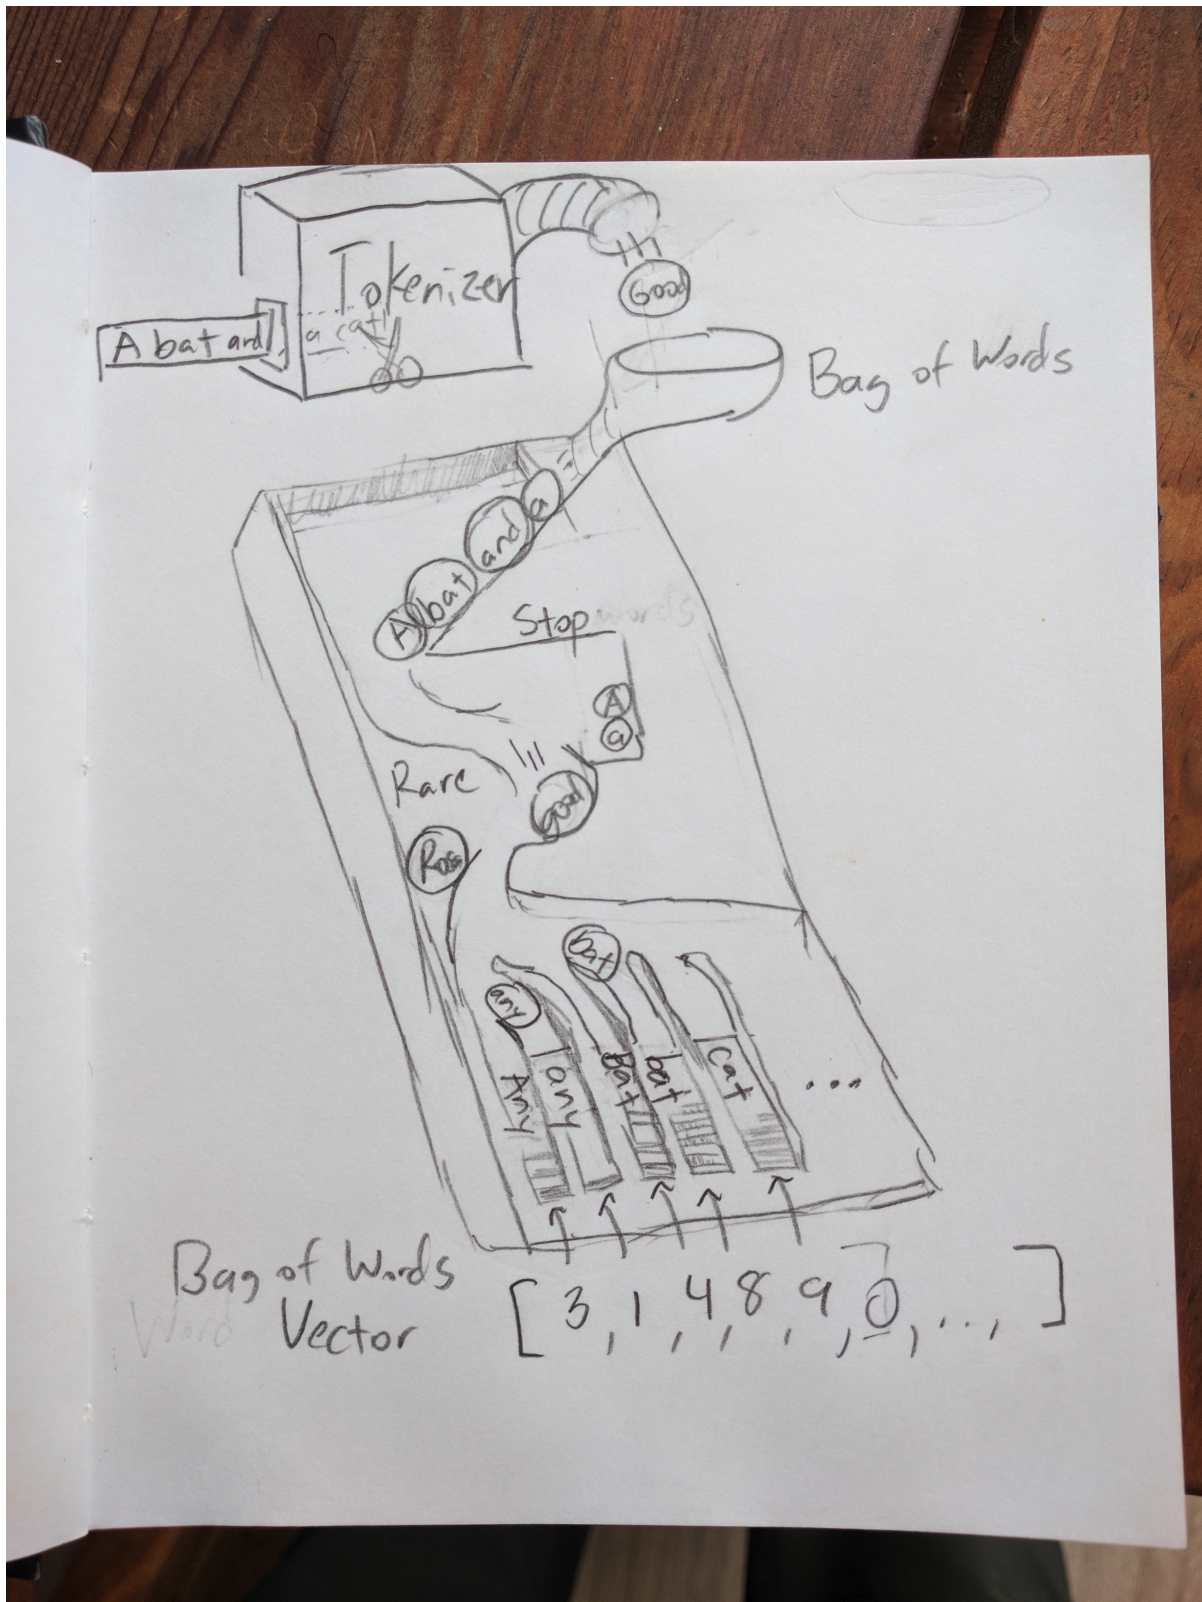 Tokenizer
Good
A bat and
a cat
Bag of Words
a
and
bat
A
Stop words
A
a
Rare
Good
bat
any
Any
any
Bat
bat
cat
...
Bag of Words
Word Vector
[3, 1, 4, 8, 9, 0, ..., ]